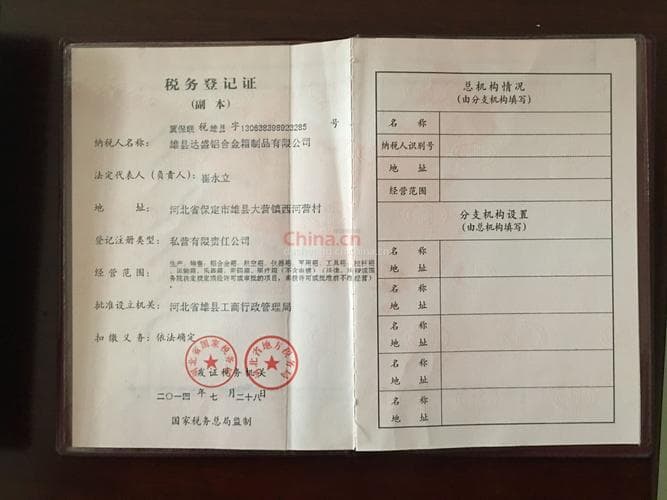 税务登记证
(副 本)
冀保联 税 雄县 字 130638398923285 号
纳税人名称： 雄县达盛铝合金箱制品有限公司
法定代表人（负责人）： 崔永立
地 址： 河北省保定市雄县大营镇西河营村
登记注册类型： 私营有限责任公司
经营范围： 生产、销售：铝合金箱、航空箱、仪器箱、军用箱、工具箱、拉杆箱
批准设立机关： 河北省雄县工商行政管理局
扣缴义务： 依法确定
河北省国家税务
河北省地方税务局
发证税务机关
二〇一四 年 七 月 二十八 日
国家税务总局监制
China.cn
总机构情况
(由分支机构填写)
名 称
纳税人识别号
地 址
经营范围
分支机构设置
(由总机构填写)
名 称
地 址
名 称
地 址
名 称
地 址
名 称
地 址
名 称
地 址